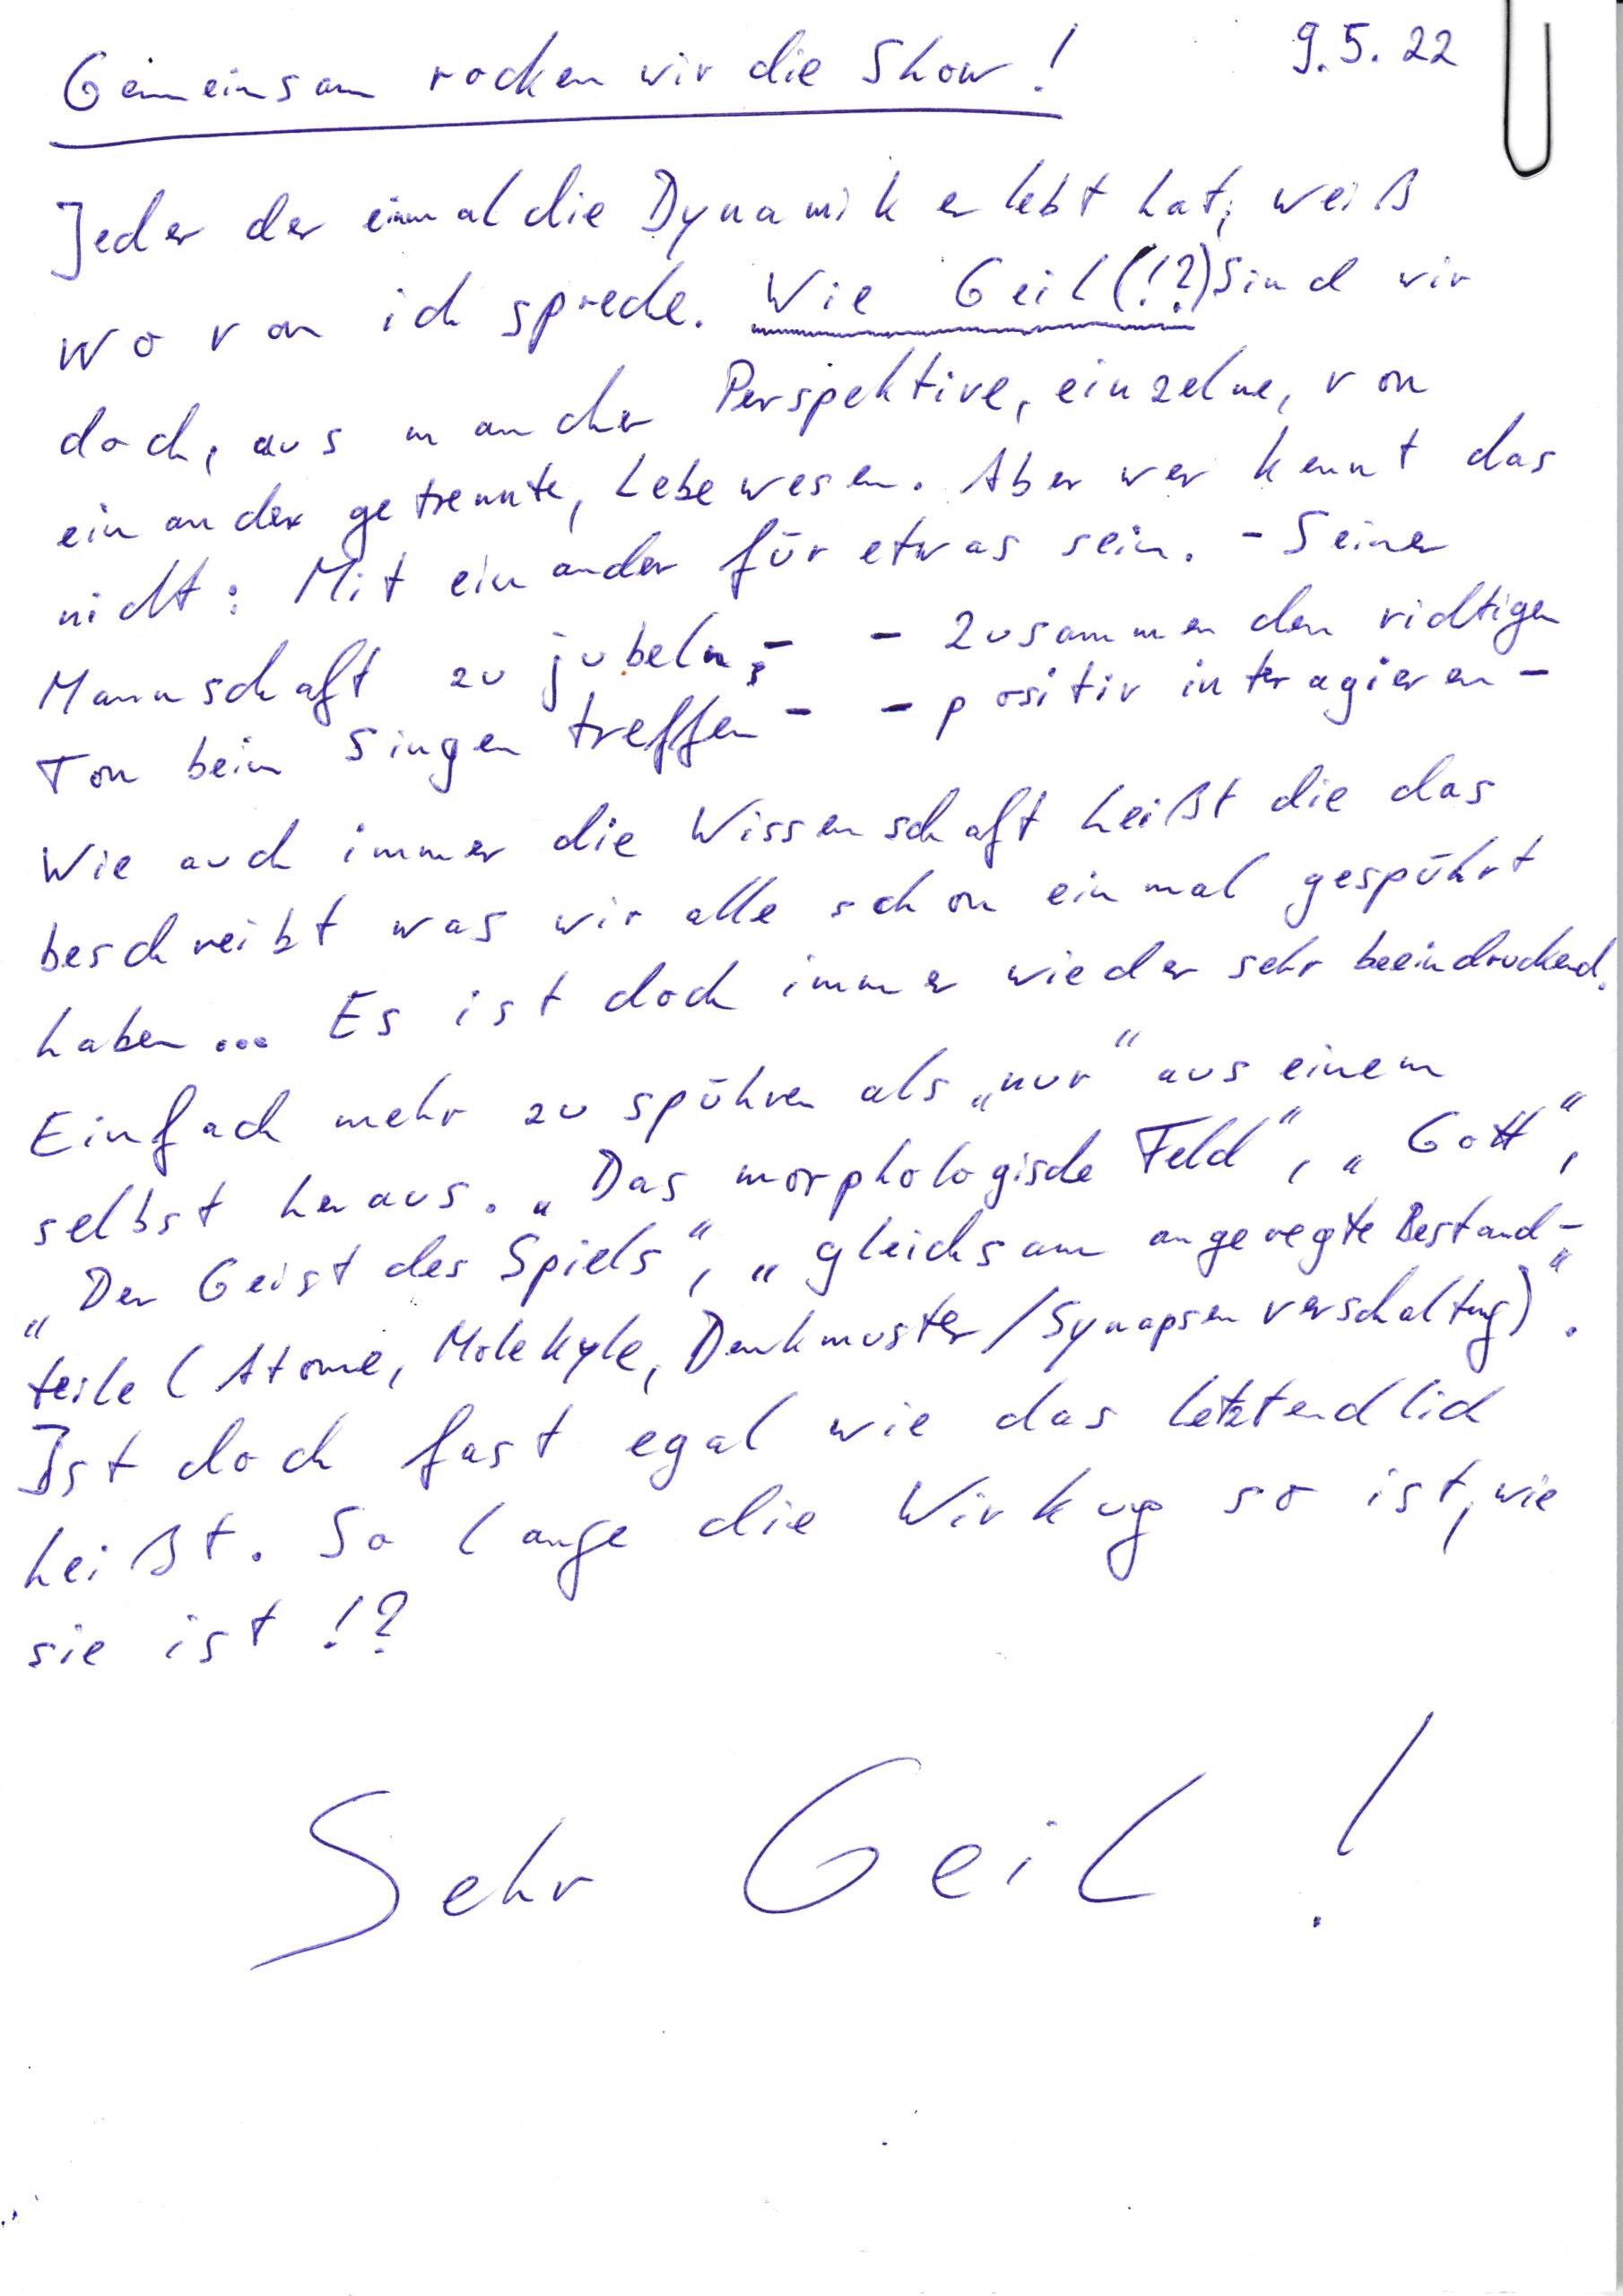 Gemeinsam rocken wir die Show! 9.5.22
Jeder der einmal die Dynamik erlebt hat, weiß
wovon ich spreche. Wie Geil(!?) Sind wir
doch, aus mancher Perspektive, einzelne, von
einander getrennte, Lebewesen. Aber wer kennt das
nicht: Miteinander für etwas sein. - Seiner
Mannschaft zu jubeln - - Zusammen den richtigen
Ton beim Singen treffen - - positiv interagieren -
Wie auch immer die Wissenschaft heißt die das
beschreibt was wir alle schon einmal gespührt
haben... Es ist doch immer wieder sehr beeindruckend.
Einfach mehr zu spühren als „nur“ aus einem
selbst heraus. „Das morphologische Feld“, „Gott“,
„Der Geist des Spiels“, „gleichsam angeregte Bestand-
teile (Atome, Molekyle, Denkmuster/Synapsenverschaltung)“.
Ist doch fast egal wie das letztendlich
heißt. So lange die Wirkug so ist, wie
sie ist!?
Sehr Geil!